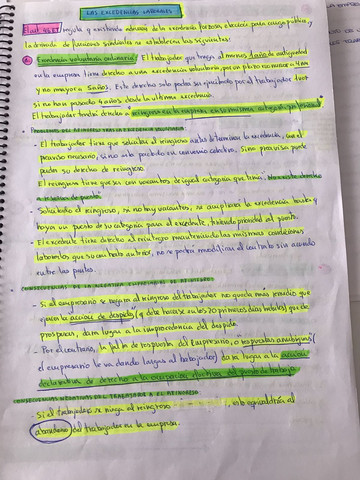 LAS EXCEDENCIAS LABORALES
El art. 46 ET regula y existiendo además de la excedencia forzosa, elección para cargo público, y
la derivada de funciones sindicales se establecen las siguientes:
Excedencia voluntaria ordinaria: El trabajador que tenga al menos 1 año de antigüedad
en la empresa tiene derecho a una excedencia voluntaria por un plazo no menor a 4 M
y no mayor a 5 años. Este derecho solo podrá ser ejercitado por el trabajador
si no han pasado 4 años desde la última excedencia.
El trabajador tendrá derecho a reingreso en la empresa en su misma categoría profesional
PROBLEMAS DEL REINGRESO TRAS LA EXCEDENCIA VOLUNTARIA
- El trabajador tiene que solicitar el reingreso antes de terminar la excedencia, con el
preaviso necesario, si no está pactado en convenio colectivo. Sin preaviso puede
perder su derecho de reingreso.
El reingreso tiene que ser con vacantes de igual categoría que tenía. No existe derecho
a reserva de puesto.
- Solicitado el reingreso, si no hay vacantes, se ampliará la excedencia hasta q
haya un puesto de su categoría para el excedente, teniendo prioridad al puesto.
- El excedente tiene derecho al reintegro manteniendo las mismas condiciones
laborales que su contrato anterior, no se podrá modificar el contrato sin acuerdo
entre las partes.
CONSECUENCIAS DE LA NEGATIVA EMPRESARIAL DE REINGRESO
- Si el empresario se niega al reingreso del trabajador no queda más remedio que
ejercer la acción de despido (q debe hacerse en los 20 primeros días hábiles) que de
prosperar, dará lugar a la improcedencia del despido.
- Por el contrario, la falta de respuesta del empresario, o respuestas ambiguas (
el empresario le va dando largas al trabajador) dará lugar a la acción
declarativa de derecho a la ocupación efectiva del puesto de trabajo.
CONSECUENCIAS NEGATIVAS DEL TRABAJADOR A EL REINGRESO:
- Si el trabajador se niega al reingreso, esto equivaldría al
abandono del trabajador en la empresa.